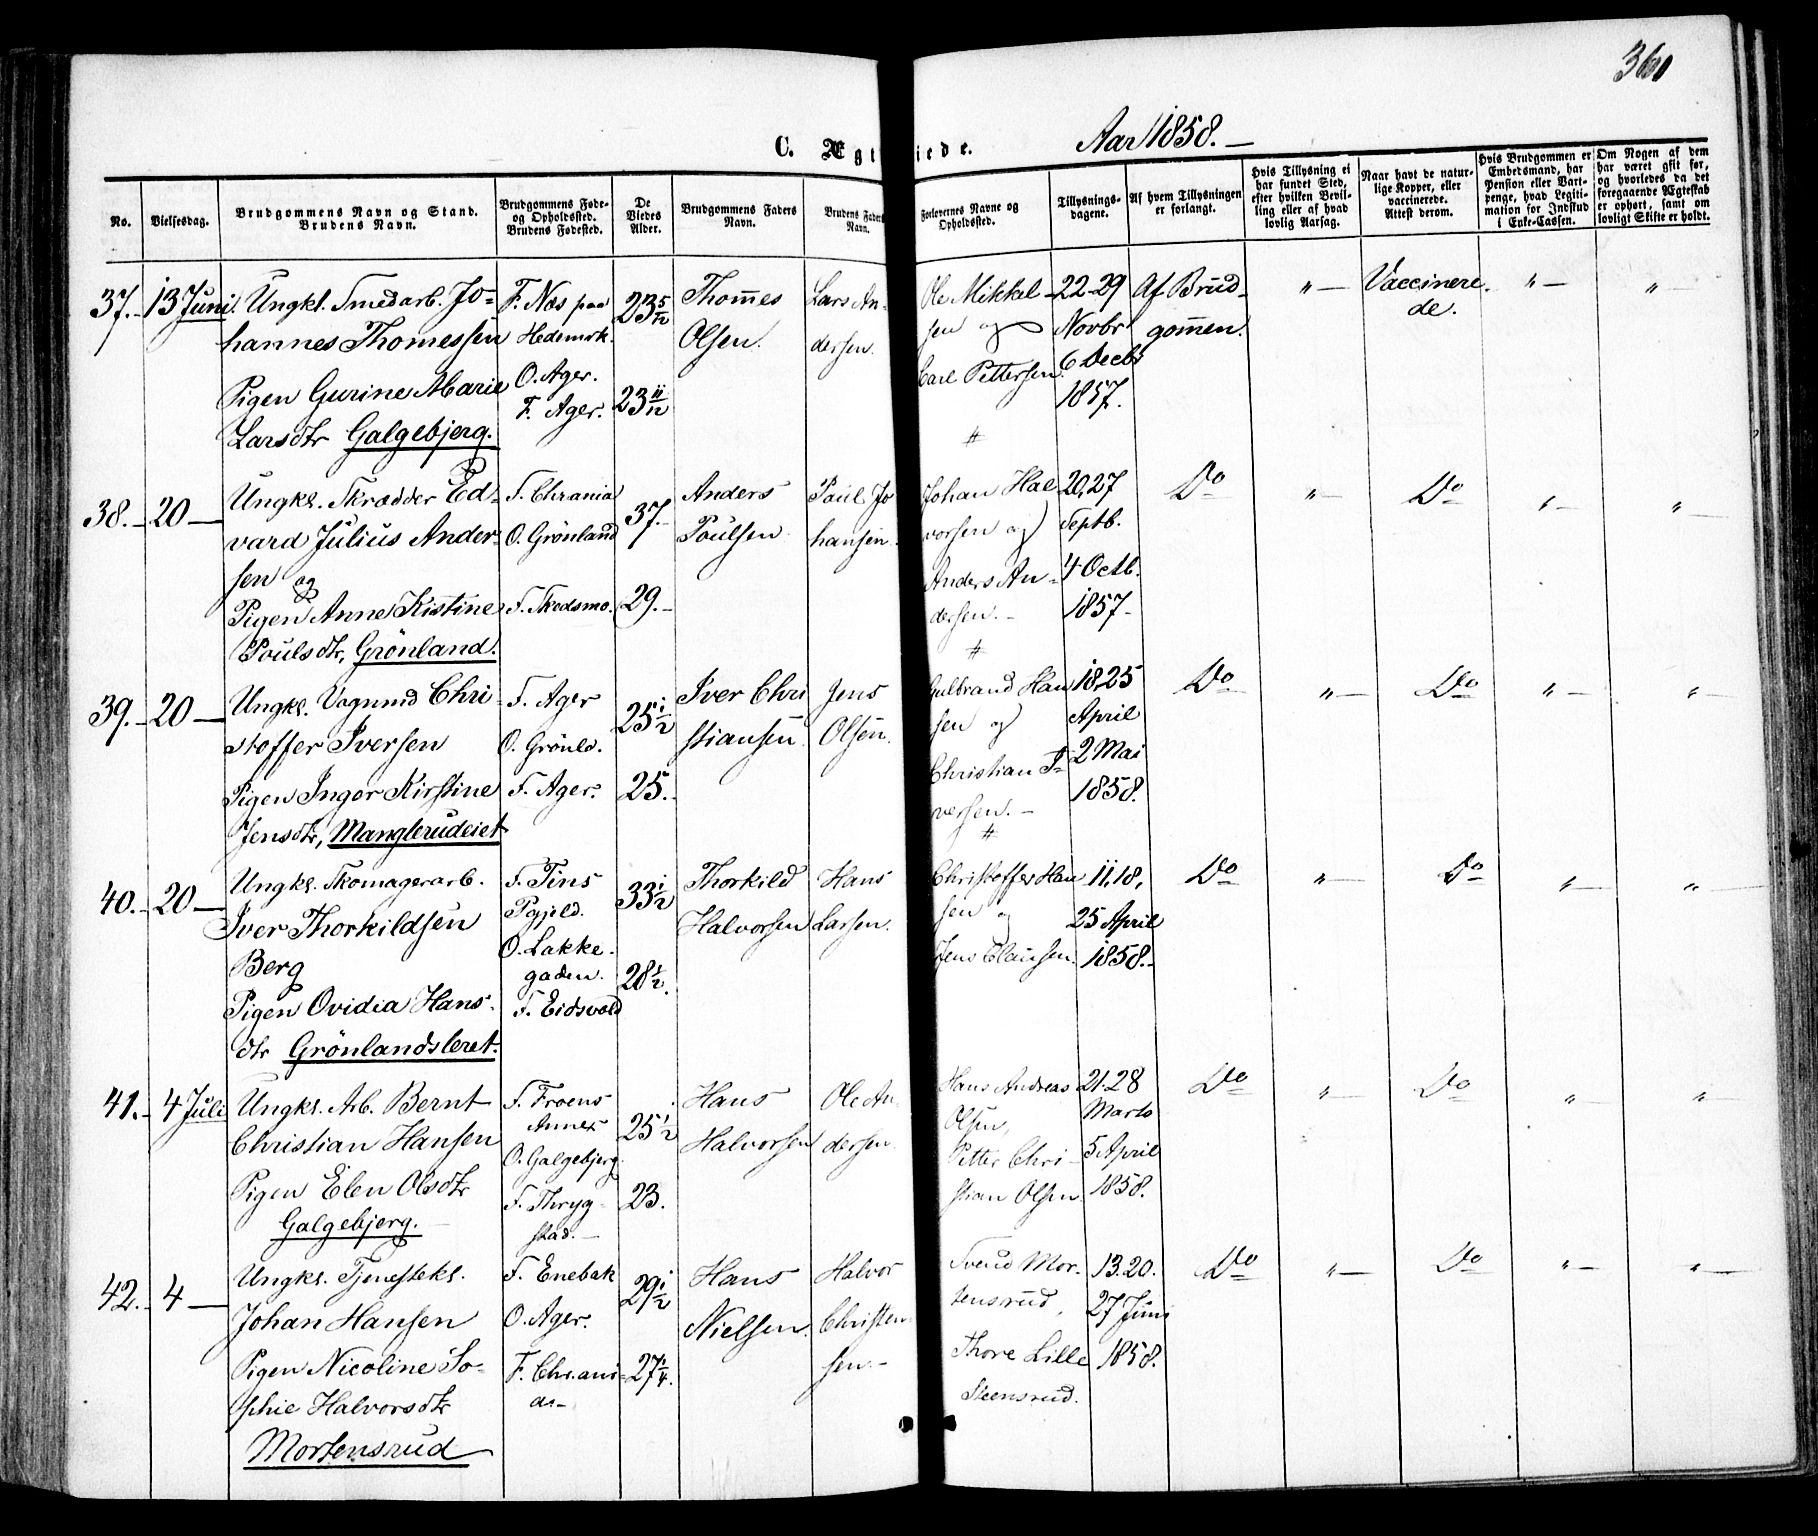 360
C. Ægt iede.
Aar 1858.-
No.
Vielsesdag.
Brudgommens Navn og Stand.
Brudens Navn.
Brudgommens Føde-
og Opholdssted.
Brudens Fødested.
De
Viedes
Alder.
Brudgommens Faders
Navn.
Brudens Faders
Navn.
Forlovernes Navne og
Opholdssted.
Tillysnings-
dagene.
Af hvem Tillysningen
er forlangt.
Hvis Tillysning ei
har fundet Sted,
efter hvilken Bevil-
ling eller af hvad
lovlig Aarsag.
Naar havt de natur-
lige Kopper, eller
vaccinerede.
Attest derom.
Hvis Brudgommen er
Embedsmand, har
Pension eller Vart-
penge, hvad Legiti-
mation for Indskud
i Enke-Cassen.
Om Nogen af dem
har været gift før,
og hvorledes da det
foregaaende Ægteskab
er ophørt, samt om
lovligt Skifte er holdt.
37.- 13 Juni.
Ungkl. Smedarb. Jo-
hannes Thomessen
Pigen Gurine Marie
Larsdtr Galgebjerg.
F. Næs paa
Hedemrk.
O. Ager.
F. Ager.
23 5/12
23 11/12
Thomes
Olsen.
Lars An-
dersen.
Ole Mikkel-
sen og
Carl Pettersen.
#
22-29
Novbr
6 Decbr
1857.
Af Brud-
gommen.
"-
Vaccinere-
de.
"-
"-
38.- 20-
Ungkl. Skrædder Ed-
vard Julius Ander-
sen og
Pigen Anne Kistine
Poulsdtr, Grönland.
F. Chrania
O. Grönland
F. Skedsmo.
37.-
29.-
Anders
Poulsen
Poul Jo
hansen.
Johan Hal
vorsen og
Anders An-
dersen.-
#
20,27
Septb.
4 Octb.
1857-
Do
"-
Do
"-
"-
39.- 20-
Ungkl. Vognmd Chri-
stoffer Iversen
Pigen Inger Kirstine
Jensdtr, Manglerudeiet
F. Ager
O. Grönld.
F. Ager.
25 1/2
25.-
Iver Chri
stiansen.
Jens
Olsen.
Gulbrand Han
sen og
Christian I-
versen.-
#
18,25
April
2 Mai
1858.
Do
"-
Do
"-
"-
40.- 20-
Ungkl. Skomagerarb.
Iver Thorkildsen
Berg
Pigen Ovidia Hans-
dtr Grönlandsleret.
F. Tins
Pgjeld.
O. Lakke-
gaden.
F. Eidsvold
33 1/2
28 1/2.
Thorkild
Halvorsen
Hans
Larsen.
Christoffer Han
sen og
Jens Clausen.
11,18,
25 April
1858.-
Do
"-
Do
"-
"-
41.- 4 Juli
Ungkl. Arb. Bernt
Christian Hansen
Pigen Elen Olsdtr
Galgebjerg.-
F. Froens
Annex
O. Galgebjerg.
F. Thryg-
stad.-
25 1/2
23.
Hans
Halvorsen
Ole An-
dersen.
Hans Andreas
Olsen,
Petter Chri-
stian Olsen.
21.28
Marts
5 April
1858.
Do
"-
Do
"-
"
42.- 4-
Ungkl. Tjenestekl.
Johan Hansen
Pigen Nicoline So-
phie Halvorsdtr
Mortensrud
F. Enebak
O. Ager.
F. Chrani-
a.-
29 1/2
27 1/4.
Hans
Nielsen.
Halvor
Christen-
sen.-
Svend Mor-
tensrud,
Thore Lille
Steensrud.
13.20.
27 Juni
1858.
Do
"-
Do
"-
"-